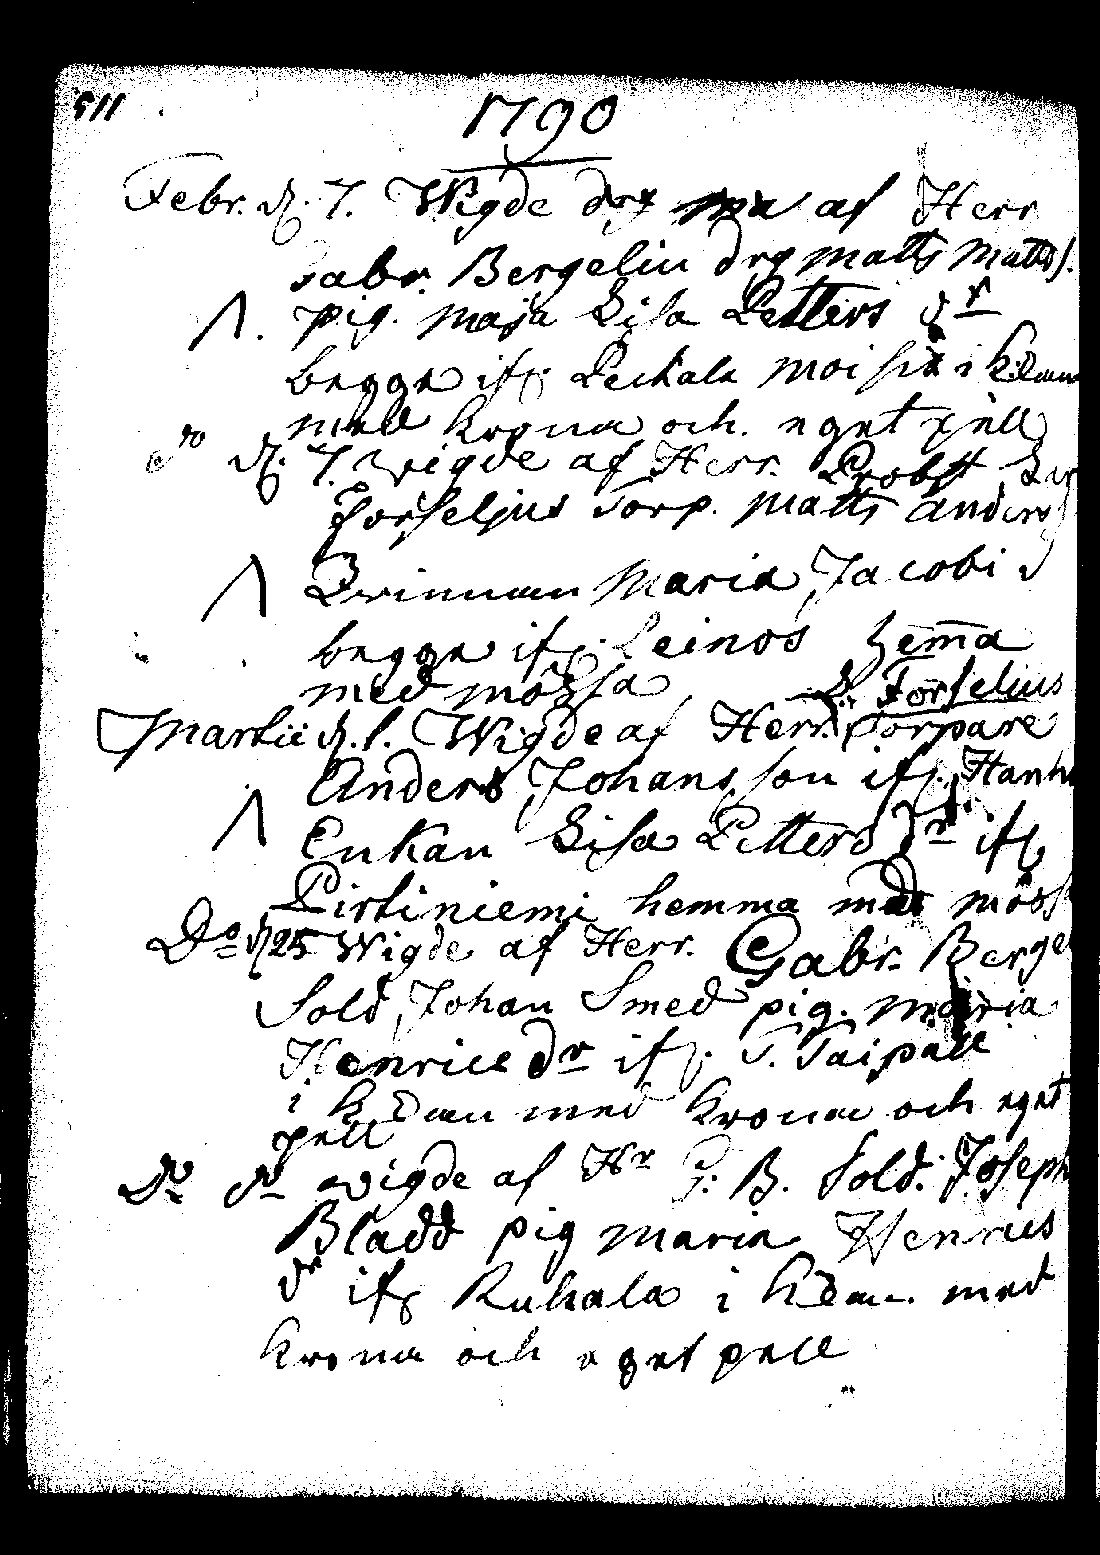 511
1790
Febr. d. 7. Wigde drg af Herr
Gabr. Bergelin drg matts matts s.
pig. maja Lisa Petters dr
begge ifr. Peckala moisia i kdan
med krona och eget pell
do d. 7. wigde af Herr. Probst
Forseljus Torp. matts anders
Qvinnan Maria Jacobi d
begge ifr. Leinos hema
med mössa D. Forselius
Martii d. 1. Wigde af Herr. Torpare
Anders Johansson ifr. Hanh
Enkan Lisa Petters dr ifr
Pirtiniemi hemma med möss
Do d 25 Wigde af Herr. Gabr. Berge
Sold Johan Smed pig. maria
Henrics dr ifr. T. Taipale
i kdan med krona och eget
pell
Do do wigde af Hr G. B. Sold. Joseph
Bladd pig maria Henrics
dr ifr Ruhala i kdan. med
krona och eget pell